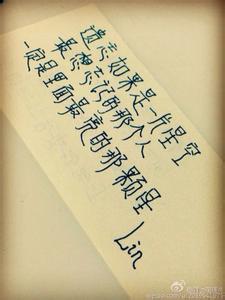 遗忘如果是一片星空
最想忘记的那个人
一定是里面最亮的那颗星
Lin